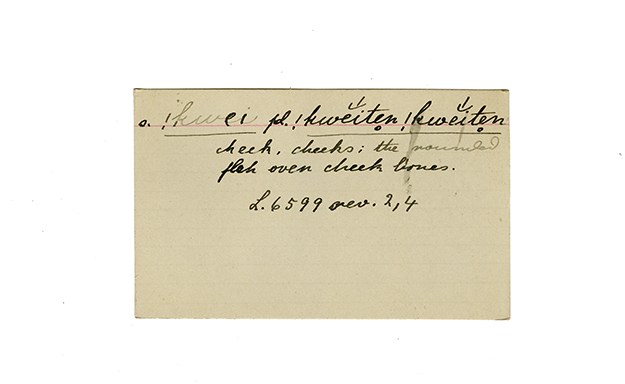 s. !kwei pl. !kwĕitẹn !kwĕitẹn
cheek, cheeks; the rounded
flesh over cheek bones.
L. 6599 rev. 2, 4